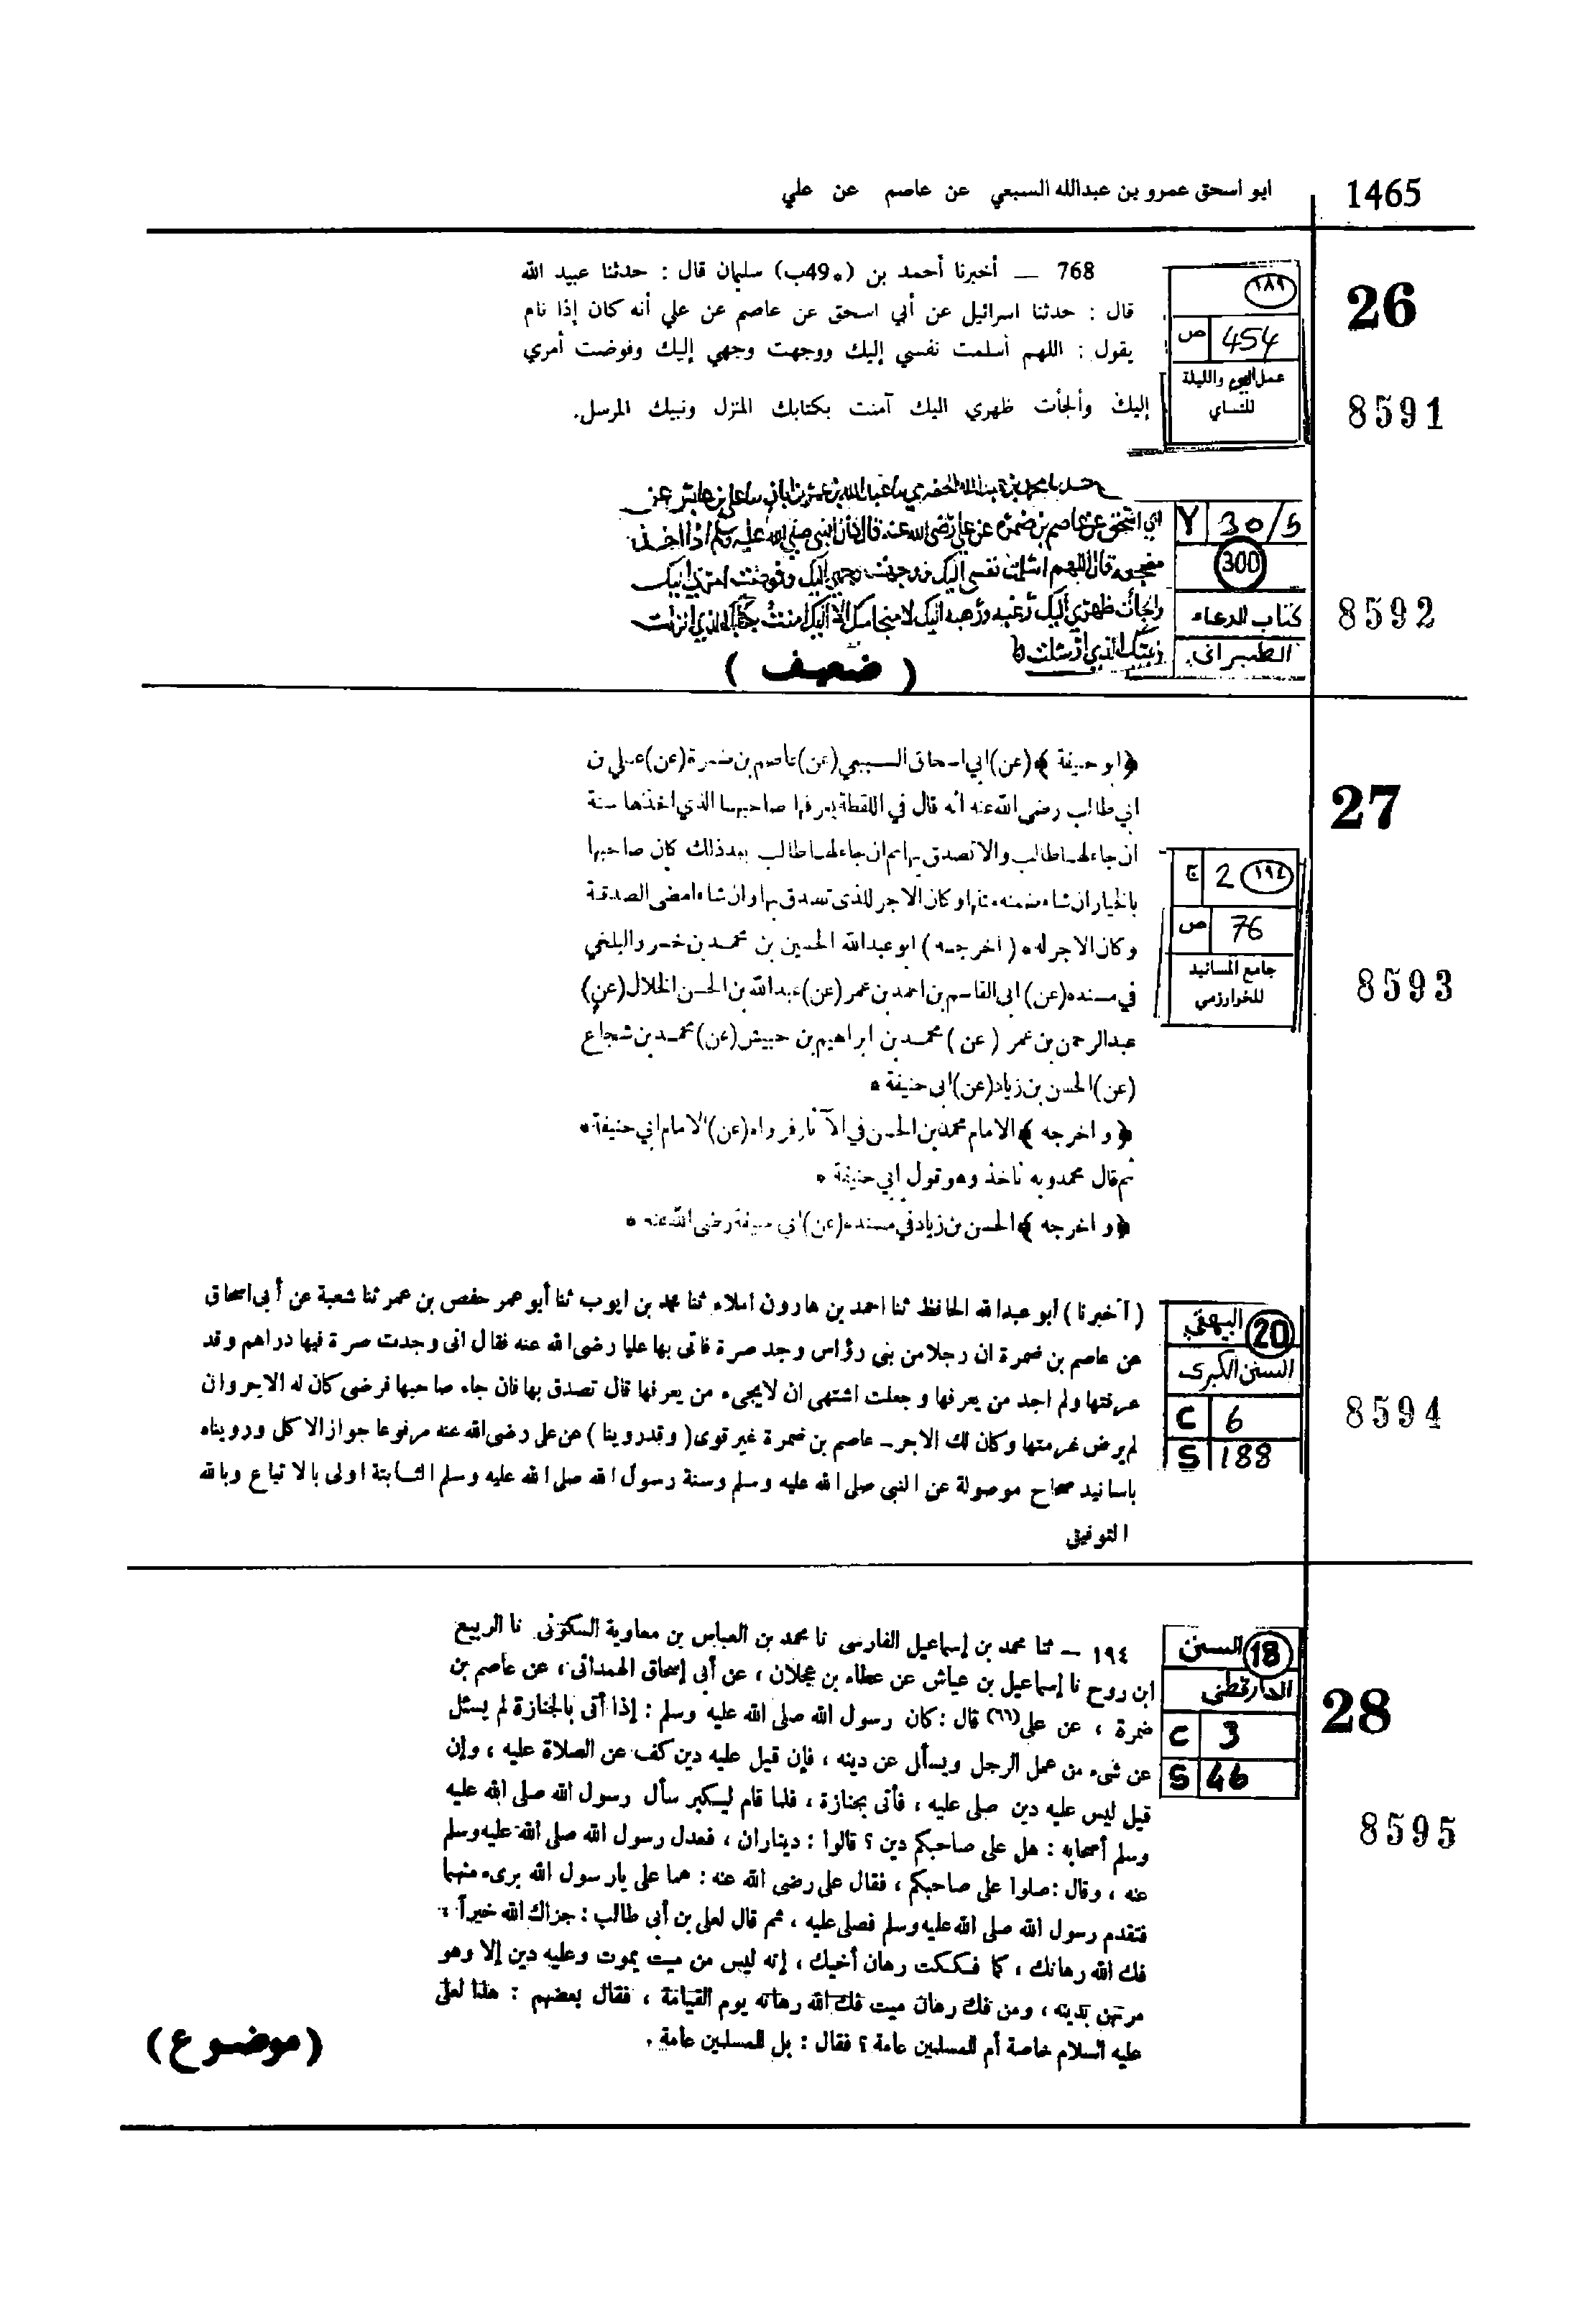 1465
ابو اسحق عمرو بن عبدالله السبعي عن عاصم عن علي
26
١٨٩
454 ص
عمل اليوم والليلة
للنساي
8591
768 — أخبرنا أحمد بن (*49ب) سليمان قال : حدثنا عبيد الله
قال : حدثنا اسرائيل عن أبي اسحق عن عاصم عن علي أنه كان إذا نام
يقول : اللهم أسلمت نفسي إليك ووجهت وجهي إليك وفوضت أمري
إليك وألجأت ظهري اليك آمنت بكتابك المنزل ونبيك المرسل.
Y 30/5
300
كتاب الدعاء
الطبراني
8592
ابي اسحق عن عاصم بن ضمرة عن علي رضي الله عنه قال كان النبي صلى الله عليه وسلم اذا اخذ
مضجعه قال اللهم اسلمت نفسي اليك ووجهت وجهي اليك وفوضت امري اليك
والجأت ظهري اليك رغبة ورهبة اليك لا منجا منك الا اليك امنت بكتابك الذي انزلت
الذي ارسلت
( ضعيف )
27
2 ١٩٤ ج
76 ص
جامع المسانيد
للخوارزمي
8593
﴿ ابو حنيفة ﴾ (عن) ابي اسحاق السبيعي (عن) عاصم بن ضمرة (عن) علي بن
ابي طالب رضي الله عنه أنه قال في اللقطة يعرفها صاحبها الذي اخذها سنة
ان جاء لها طالب والا تصدق بها ثم ان جاء لها طالب بعد ذلك كان صاحبها
بالخيار ان شاء ضمنه مثلها وكان الاجر للذى تصدق بها وان شاء امضى الصدقة
وكان الاجر له * ( اخرجه ) ابو عبدالله الحسين بن محمد بن خسرو البلخي
في مسنده (عن) ابى القاسم بن احمد بن عمر (عن) عبدالله بن الحسن الخلال (عن)
عبدالرحمن بن عمر ( عن ) محمد بن ابراهيم بن حبيش (عن) محمد بن شجاع
(عن) الحسن بن زياد (عن) ابى حنيفة *
﴿ و اخرجه ﴾ الامام محمد بن الحسن في الآثار فرواه (عن) الامام ابي حنيفة *
ثم قال محمد وبه ناخذ وهو قول ابي حنيفة *
﴿ و اخرجه ﴾ الحسن بن زياد في مسنده (عن) ابي حنيفة رضى الله عنه *
البيهقي 20
السنن الكبرى
C 6
S 188
8594
( أخبرنا ) أبو عبدالله الحافظ ثنا احمد بن هارون املاء ثنا محمد بن ايوب ثنا أبو عمر حفص بن عمر ثنا شعبة عن أبى اسحاق
عن عاصم بن ضمرة ان رجلا من بنى رؤاس وجد صرة فاتى بها عليا رضى الله عنه فقال انى وجدت صرة فيها دراهم وقد
عرفتها ولم اجد من يعرفها وجعلت اشتهى ان لايجىء من يعرفها قال تصدق بها فان جاء صاحبها فرضى كان له الاجر وان
لم يرض غرمتها وكان لك الاجر – عاصم بن ضمرة غير قوى ( وقد روينا ) عن على رضى الله عنه مرفوعا جواز الاكل ورويناه
باسانيد صحاح موصولة عن النبى صلى الله عليه وسلم وسنة رسول الله صلى الله عليه وسلم الثابتة اولى بالاتباع وبالله
التوفيق
السنن 18
الدارقطني
C 3
S 46
28
8595
١٩٤ – ثنا محمد بن إسماعيل الفارسى نا محمد بن العباس بن معاوية السكونى نا الربيع
ابن روح نا إسماعيل بن عياش عن عطاء بن عجلان ، عن أبى إسحاق الهمدانى ، عن عاصم بن
ضمرة ، عن على(٦٦) قال : كان رسول الله صلى الله عليه وسلم : إذا أتى بالجنازة لم يسئل
عن شىء من عمل الرجل ويسأل عن دينه ، فإن قيل عليه دين كف عن الصلاة عليه ، وإن
قيل ليس عليه دين صلى عليه ، فأتى بجنازة ، فلما قام ليكبر سأل رسول الله صلى الله عليه
وسلم أصحابه : هل على صاحبكم دين ؟ قالوا : ديناران ، فعدل رسول الله صلى الله عليه وسلم
عنه ، وقال : صلوا على صاحبكم ، فقال على رضى الله عنه : هما على يارسول الله برىء منهما
فتقدم رسول الله صلى الله عليه وسلم فصلى عليه ، ثم قال لعلى بن أبى طالب : جزاك الله خيراً ،
فك الله رهانك ، كما فككت رهان أخيك ، إنه ليس من ميت يموت وعليه دين إلا وهو
مرتهن بدينه ، ومن فك رهان ميت فك الله رهانه يوم القيامة ، فقال بعضهم : هذا لعلى
عليه السلام خاصة أم للمسلمين عامة ؟ فقال : بل للمسلمين عامة .
(موضوع)